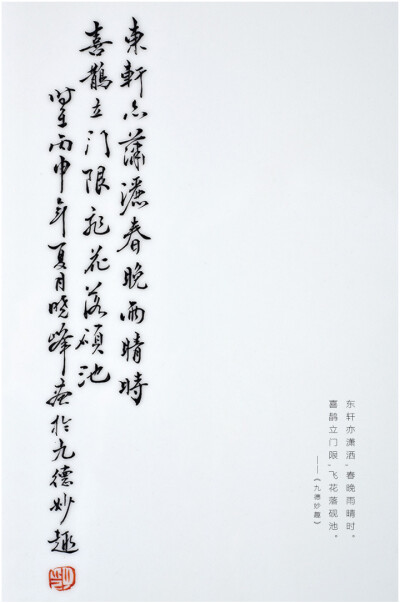 東軒亦蕭灑春晚雨晴時
喜鵲立门限飛花落硯池
時在丙申年夏月晓峰画於九德妙趣
东轩亦潇洒，春晚雨晴时。
喜鹊立门限，飞花落砚池。
——《九德妙趣》